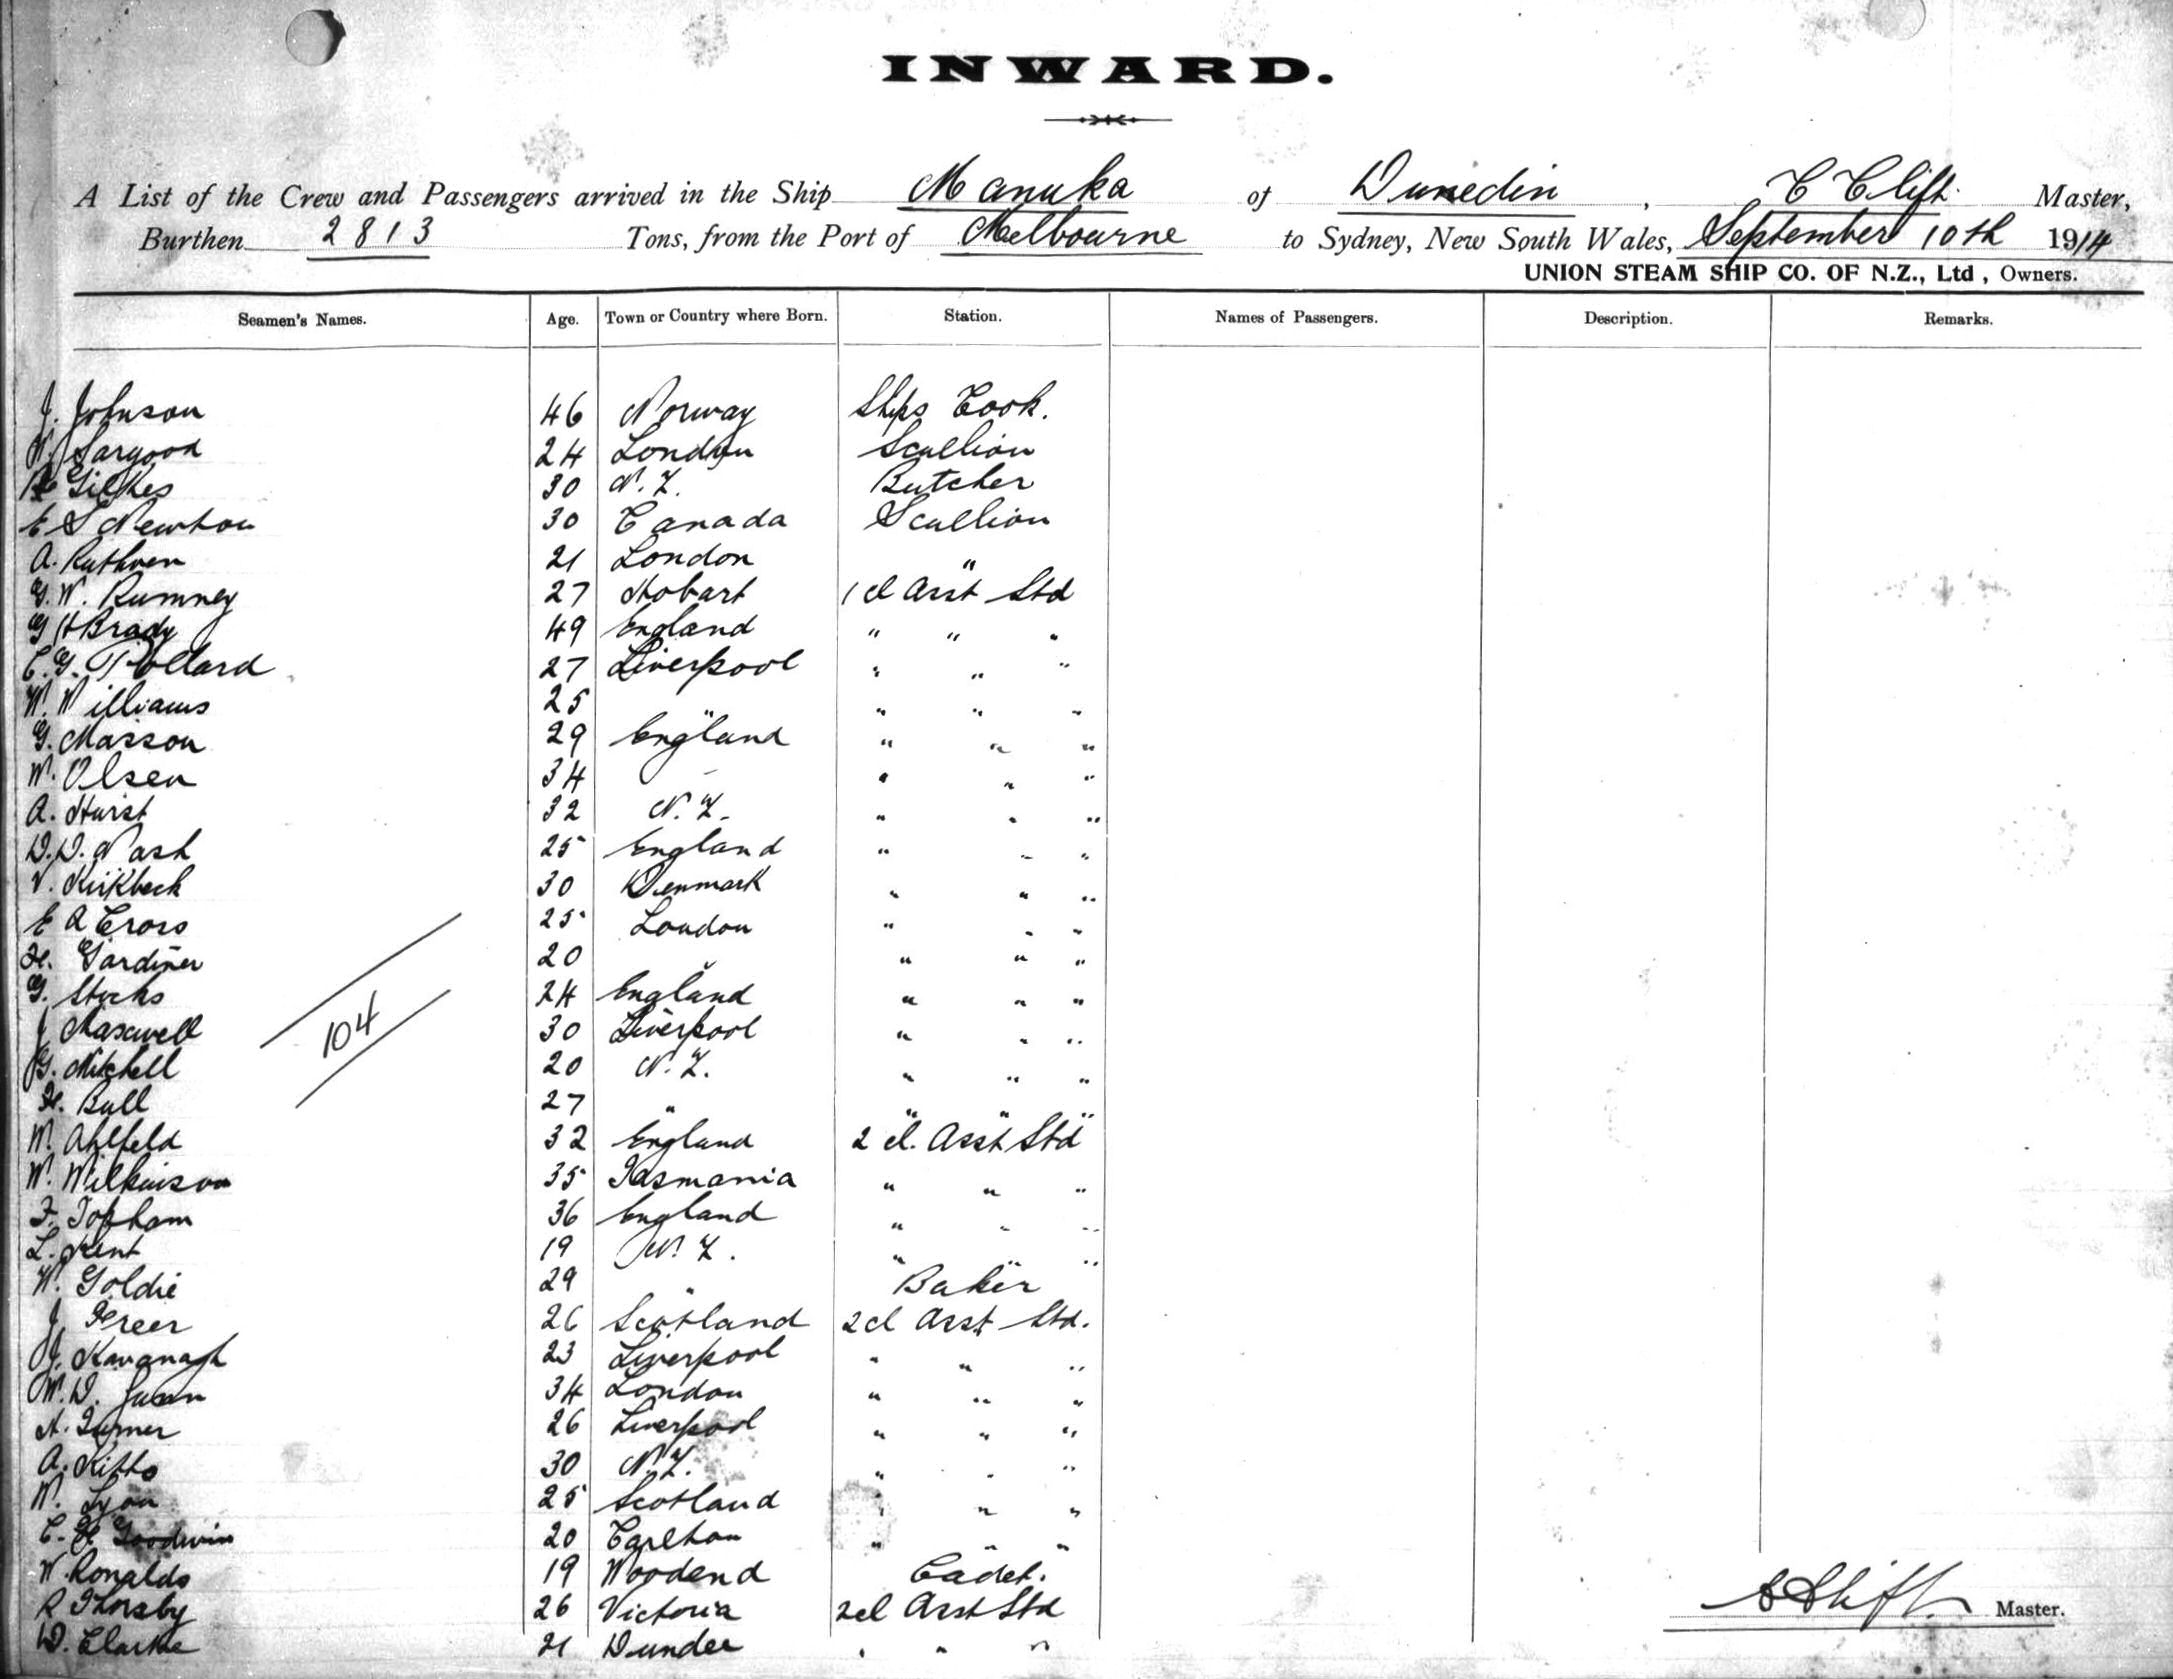 INWARD.
A List of the Crew and Passengers arrived in the Ship Manuka of Dunedin, C Clift Master,
Burthen 2813 Tons, from the Port of Melbourne to Sydney, New South Wales, September 10th 1914
UNION STEAM SHIP CO. OF N.Z., Ltd, Owners.
Seamen's Names. Age. Town or Country where Born. Station. Names of Passengers. Description. Remarks.
J. Johnson 46 Norway Ships Cook.
Sargood 24 London Scullion
Gilkes 30 N.Z. Butcher
E S Newton 30 Canada Scullion
A. Ruthven 21 London "
G. W. Rumney 27 Hobart 1 cl Asst Std
G H Brady 49 England " " "
C. G. Pollard 27 Liverpool " " "
W. Williams 25 " " " "
G. Masson 29 England " " "
W. Olsen 34 " " " "
A. Hurst 32 N.Z. " " "
D. D. Nash 25 England " " "
V. Kirkbeck 30 Denmark " " "
E A Cross 25 London " " "
H. Gardiner 20 " " " "
G. Stocks 24 England " " "
J Maxwell 30 Liverpool " " "
104
G. Mitchell 20 N.Z. " " "
H. Bull 27 " " " "
W. Ahlfeld 32 England 2 cl. Asst Std
W. Wilkinson 35 Tasmania " " "
F. Topham 36 England " " "
L. Kent 19 N.Z. " " "
W. Goldie 29 " Baker
J Greer 26 Scotland 2 cl Asst Std.
J. Kavanagh 23 Liverpool " " "
W. D. 34 London " " "
A. Turner 26 Liverpool " " "
A. Kitto 30 N.Z. " " "
W. Lyon 25 Scotland " " "
C. H Goodwin 20 Carlton " " "
W. Ronalds 19 Woodend Cadet.
R Thorsby 26 Victoria 2 cl Asst Std
D. Clarke 21 Dundee " " "
C Clift Master.